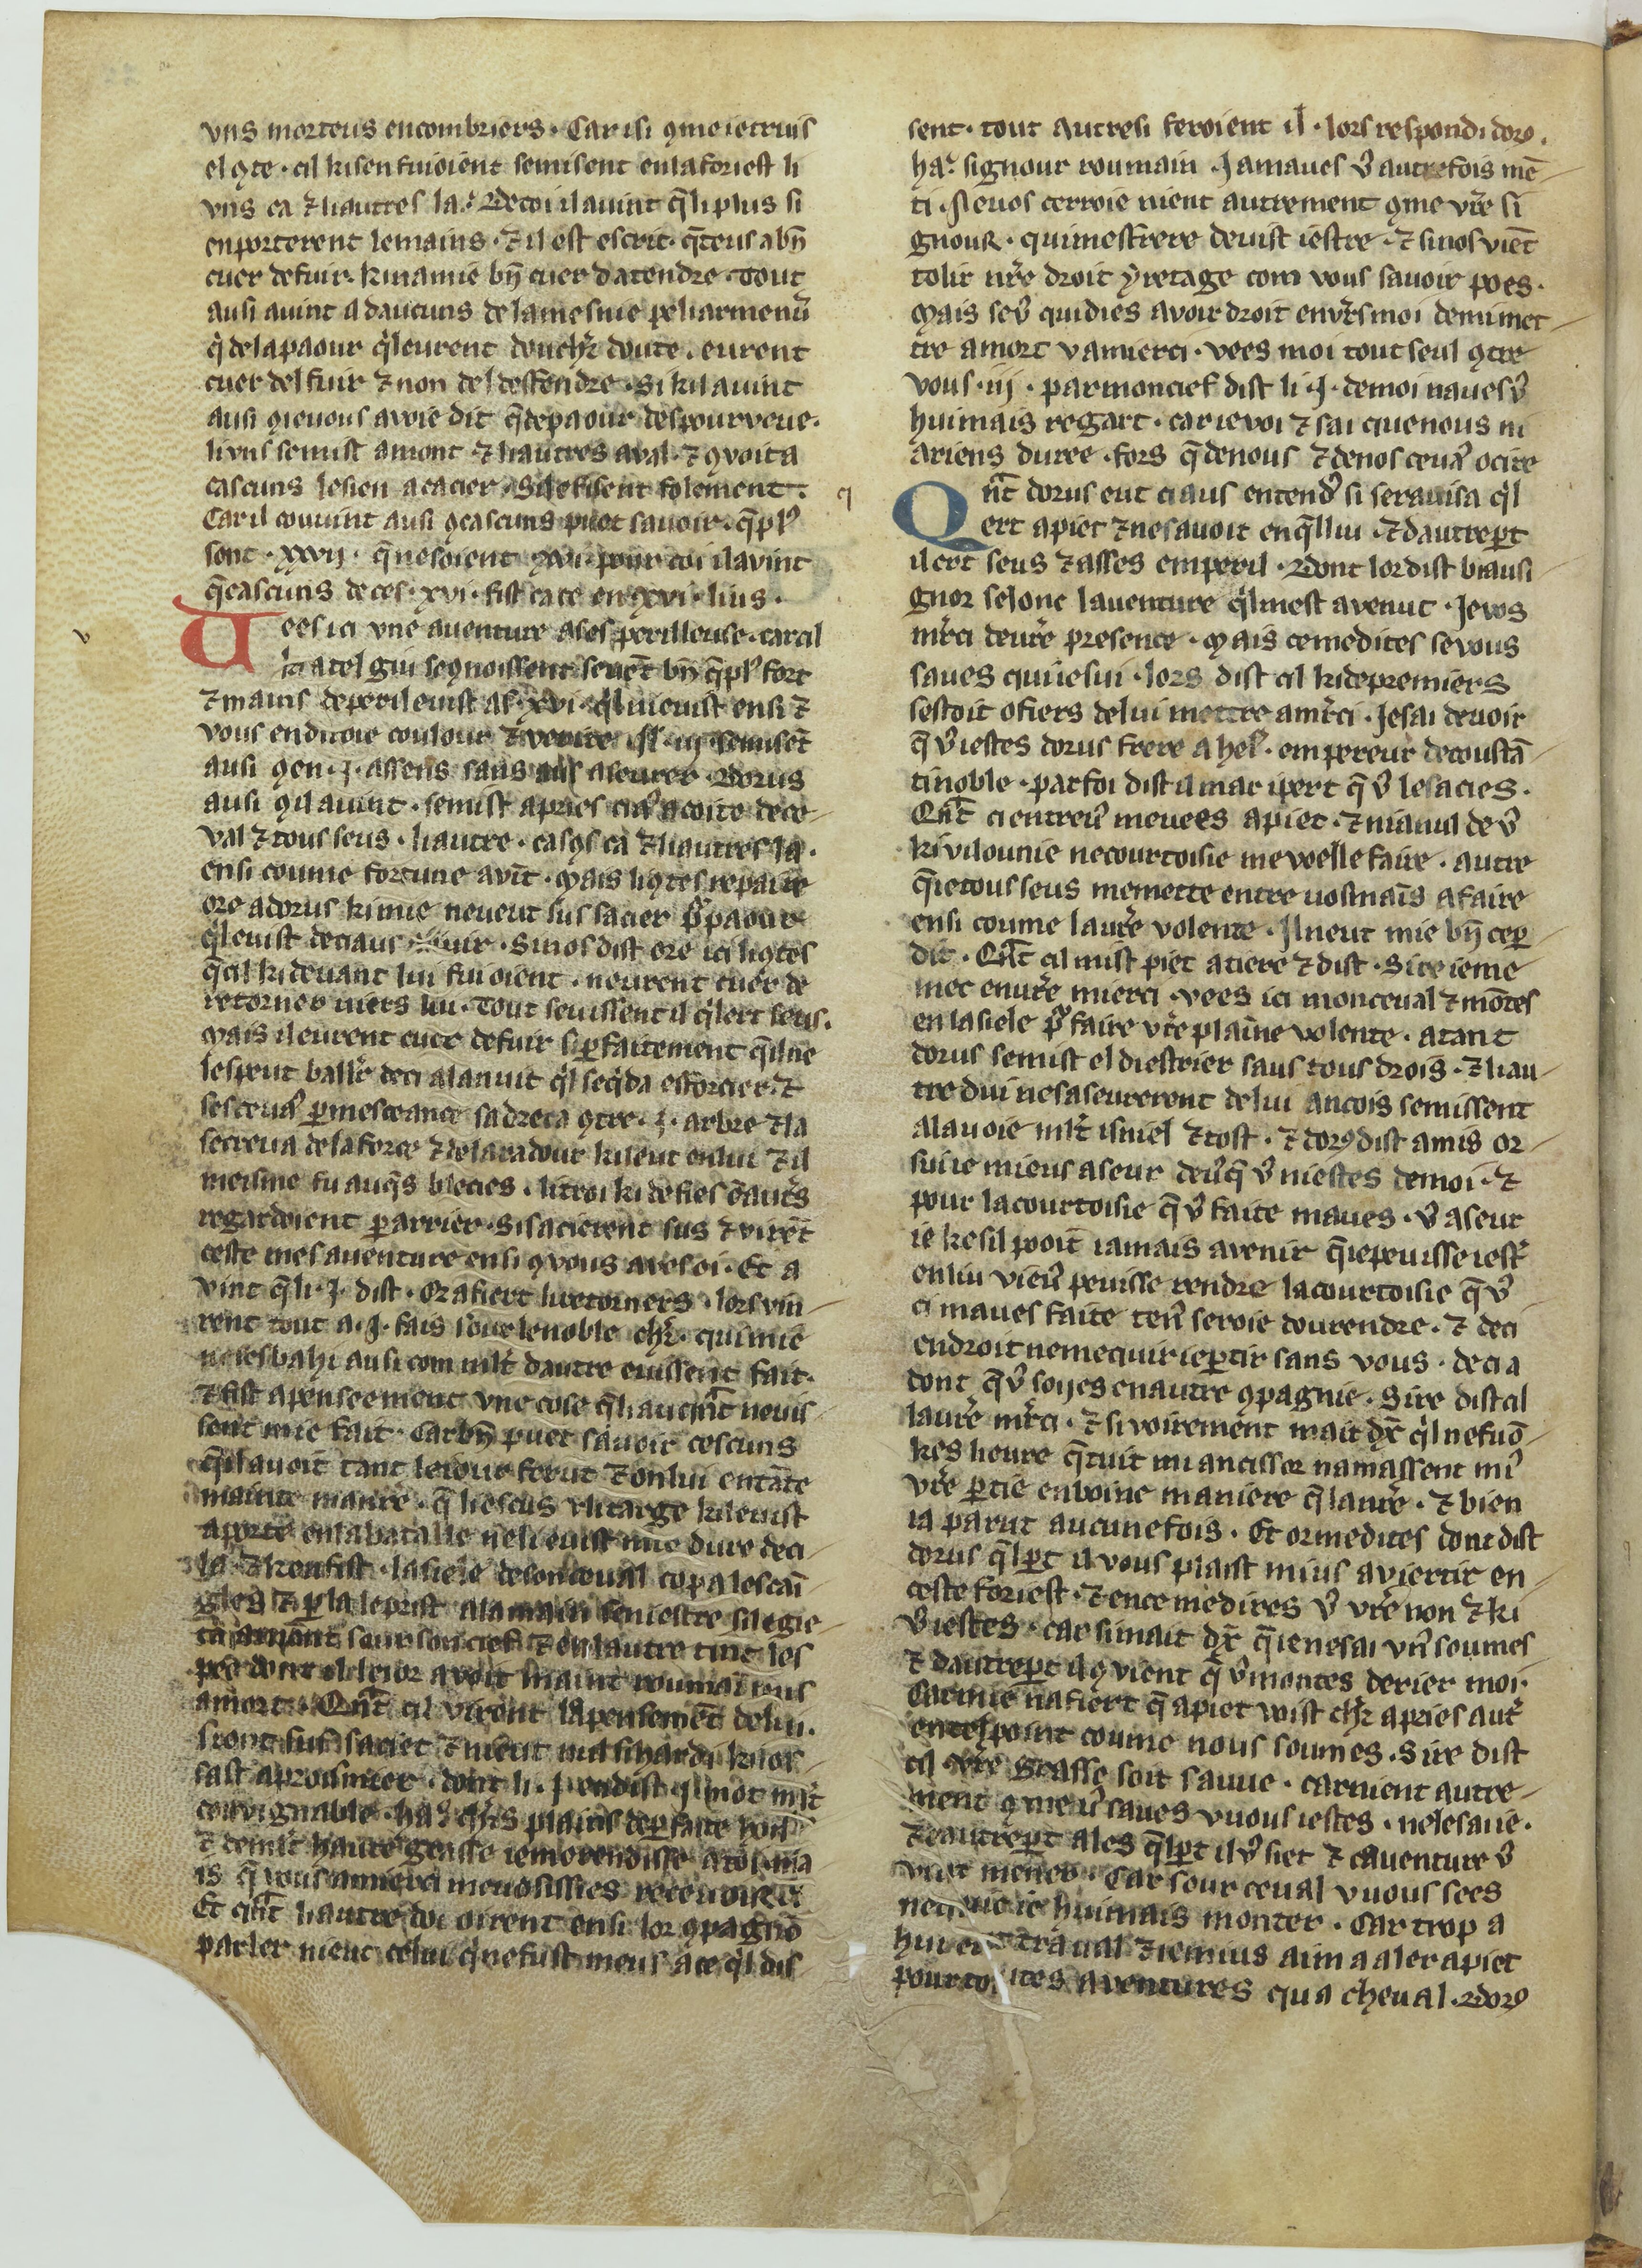 vns morteus encombriers · Car isi ꝯme ie truis
el ꝯte · cil ki sen fuioient se misent en la foriest li
vns ca ⁊ li autres la · De coi il auint q̄ li plus si
en porterent le mains · ⁊ il est escrit · q̄ teus a bn̄
cuer de fuir · ki na mie bn̄ cuer datendre · Tout
ausi auint il daucuns de la mesnie peliarmenꝰ
q̇ de la paour q̇l eurent dou chlr̄ doute · eurent
cuer del fuir ⁊ non del desfendre · Si kil auint
ausi ꝯ ie uous auoie dit q̄ de paour despourveue ·
li vns se mist amont ⁊ li autres aual · ⁊ ꝯuoita
cascuns le sien a cacier · Si le fisent folement ·
Car il couuint ausi ꝯ cascuns puet sauoir · q̄ plꝰ
sont · xxvij · q̄ ne soient xvi · pour coi il auint
q̄ cascuns de ces · xvi · fist cace en xvi · lius ·
v
Uees ici vne auenture ases perilleuse · car cil
ki a tel giu se ꝯnoissent seuēt bn̄ q̄ plꝰ fort
⁊ mains de peril euist as · xvi · q̇l ni euist ensi ⁊
vous en diroie coulour ⁊ verite si · iij · se misēt
ausi ꝯ en · j · assens sans aus aseurer · Dorus
ausi ꝯ il auint · semist apries ciaꝰ a coite de ce-
val ⁊ tous seus · li autre · casꝯs ca ⁊ li autres la ·
ensi coume fortune auīt · Mais li ꝯtes repaire
ore a dorus ki mie neueut sus sacier pͬ paour
q̇l euist de ciaus suir · Si nos dist ore ici li ꝯtes
q̄ cil ki deuant lui fuioient · neurent cuer de
retorner viers lui · Tout seuissent il q̇l ert seus ·
Mais il eurent cuer de fuir si ꝑfaitement q̄ il ne
les peut ballr̄ deci a la nuit q̇l se q̇da esforcier · ⁊
ses ceuaꝰ ꝑ mesceance sa dreca ꝯtre · j · arbre ⁊ la
se creua de la force ⁊ de la radour ki seut en lui ⁊ il
meisme fu auq̄s blecies · li troi ki de fies ē autrs̄
regardoient ꝑ arrier · Si sacierent sus ⁊ virēt
ceste mesauenture ensi ꝯ vous aues oi · Et a
vint q̄ li · j · dist · Or afiert li retorners · lors vin-
rent tout a · j · fais sour le noble chlr̄ · qui mie
ne sesbahi ausi com mlt̄ dautre euissent fait ·
⁊ fist apenseement vne cose q̄ li aucq̄nt neuis-
sent mie fait · Car bn̄ puet sauoir cescuns
q̄ il auoit tant le iour ferut ⁊ on lui en tāte
mainte manre · q̄ li escus v li targe kil euist
aporte en la bataille neli euist mie dure deci
la · ⁊ kon fist · la siele de son ceual copa les cai-
gles ⁊ ꝑ la le prist a la main seniestre si le gie-
ta amont sour son cief ⁊ en lautre tint les-
pee dont il le ior auoit maint roumai mis
a mort · Qn̄t cil virent lapensemēt de lui ·
si ont sus saciet ⁊ nieut nul si hardi ki los-
sast aproismier · dont li · j · en dist · j · mot mlt̄
couvignable · ha · chlr̄s plains de ꝑfaite bōt
⁊ de mlt haute grasse ie me rendisse a toi · ma
is q̄ vous a mierci me vosissies receuoir ·
Et qn̄t li autre doi oirent ensi lor ꝯpagnō
parler nieut celui q̇ ne fust meus a ce q̇l dis-
sent · tout autresi feroient il · lors respondi dorꝰ ·
ha · signour roumain · Ja maues vꝰ autrefois mē-
ti · Ne uos cerroie nient autrement ꝯme vr̄e si
gnour · qui mes frere deuist iestre · ⁊ si nos viēt
tolir nr̄e droit yretage com vous sauoir poes ·
Mais se vꝰ quidies auoir droit enuers moi de mi met-
tre a mort v a mierci · vees moi tout seul ꝯtre
vous · iij · par mon cief dist li · j · de moi naues vꝰ
huimais regart · car ie voi ⁊ sai que nous ni
ariens duree · fors q̄ de nous ⁊ de nos ceuaꝰ ocire
q
Qn̄t dorus eut ciaus entendꝰ si se rauisa q̇l
ert a piet ⁊ ne sauoit en q̄l liu · ⁊ dautre ꝑt
il ert seus ⁊ asses en peril · Dont lor dist biau si
gnor selonc lauenture q̇l mest auenut · Je vos
mr̄ci de vr̄e presence · Mais ce me dites se vous
saues qui ie sui · lors dist cil ki de premiers
sestoit ofiers de lui mettre a mr̄ci · Je sai de voir
q̄ vꝰ iestes dorus frere a helꝰ · empereur de coustā-
tinoble · par foi dist il mar i ꝑert q̄ vꝰ le sacies ·
Qn̄t ci entre vꝰ me vees a piet · ⁊ ni a nul de vꝰ
ki vilounie ne courtoisie me voelle faire · autre
q̄ ie tous seus me mette entre uos mai̅s a faire
ensi coume la vr̄e volente · Il neut mie bn̄ ce ꝑ
dit · Qn̄t cil mist piet a tiere ⁊ dist · Sire ie me
mec en vr̄e mierci · vees ici mon ceual ⁊ mōtes
en la siele pͬ faire vr̄e plaine volente · atant
dorus se mist el diestrier saus tous drois · ⁊ li au-
tre dui ne saseurerent de lui ancois se missent
a la uoie mlt̄ isniel ⁊ tost · ⁊ dorꝰ dist amis or
sui ie mieus aseur de vꝰ q̄ vꝰ niestes de moi · ⁊
pour la courtoisie q̄ vꝰ faite maues · vꝰ aseur
ie ke sil pooit iamais auenir q̄ ie peuisse iestr̄
en liu v ie vꝰ peuisse rendre la courtoisie q̄ vꝰ
ci maues faite tenꝰ seroie dou rendre · ⁊ deci
endroit ne me quir ie ꝑtir sans vous · deci a
dont q̄ vꝰ soijes en autre ꝯpagnie · Sire dist cil
la vr̄e mr̄ci · ⁊ si voirement mait dx̄ q̇l ne fu ō-
kes heure q̄ tuit mi ancissor namassent mīꝰ
vr̄e ꝑtie en boine maniere q̄ lautr̄e · ⁊ bien
ia parut aucune fois · Et or me dites dont dist
dorus q̄l ꝑt il vous plaist mius a viertir en
ceste foriest · ⁊ en ce me dires vꝰ vr̄e non ⁊ ki
vꝰ iestes · car si mait dx̄ q̄ ie ne sai v nꝰ soumes
⁊ dautre ꝑt il ꝯuient q̄ vꝰ montes derier moi ·
Car mie nafiert q̄ a piet voist chlr̄ apries autr̄
en tel point coume nous soumes · Sire dist
cil vr̄e grasse soit sauue · car nient autre-
ment ꝯme vꝰ saues v uous iestes · ne le sai ie ·
⁊ dautre ꝑt ales q̄l ꝑt il vꝰ siet ⁊ cauenture vꝰ
viut mener · Car sour ceual v uous sees
ne quic ie huimais monter · Car trop a
hui eut traual ⁊ ie mius aim a aler a piet
pour toutes auentures qua cheual · Dorꝰ